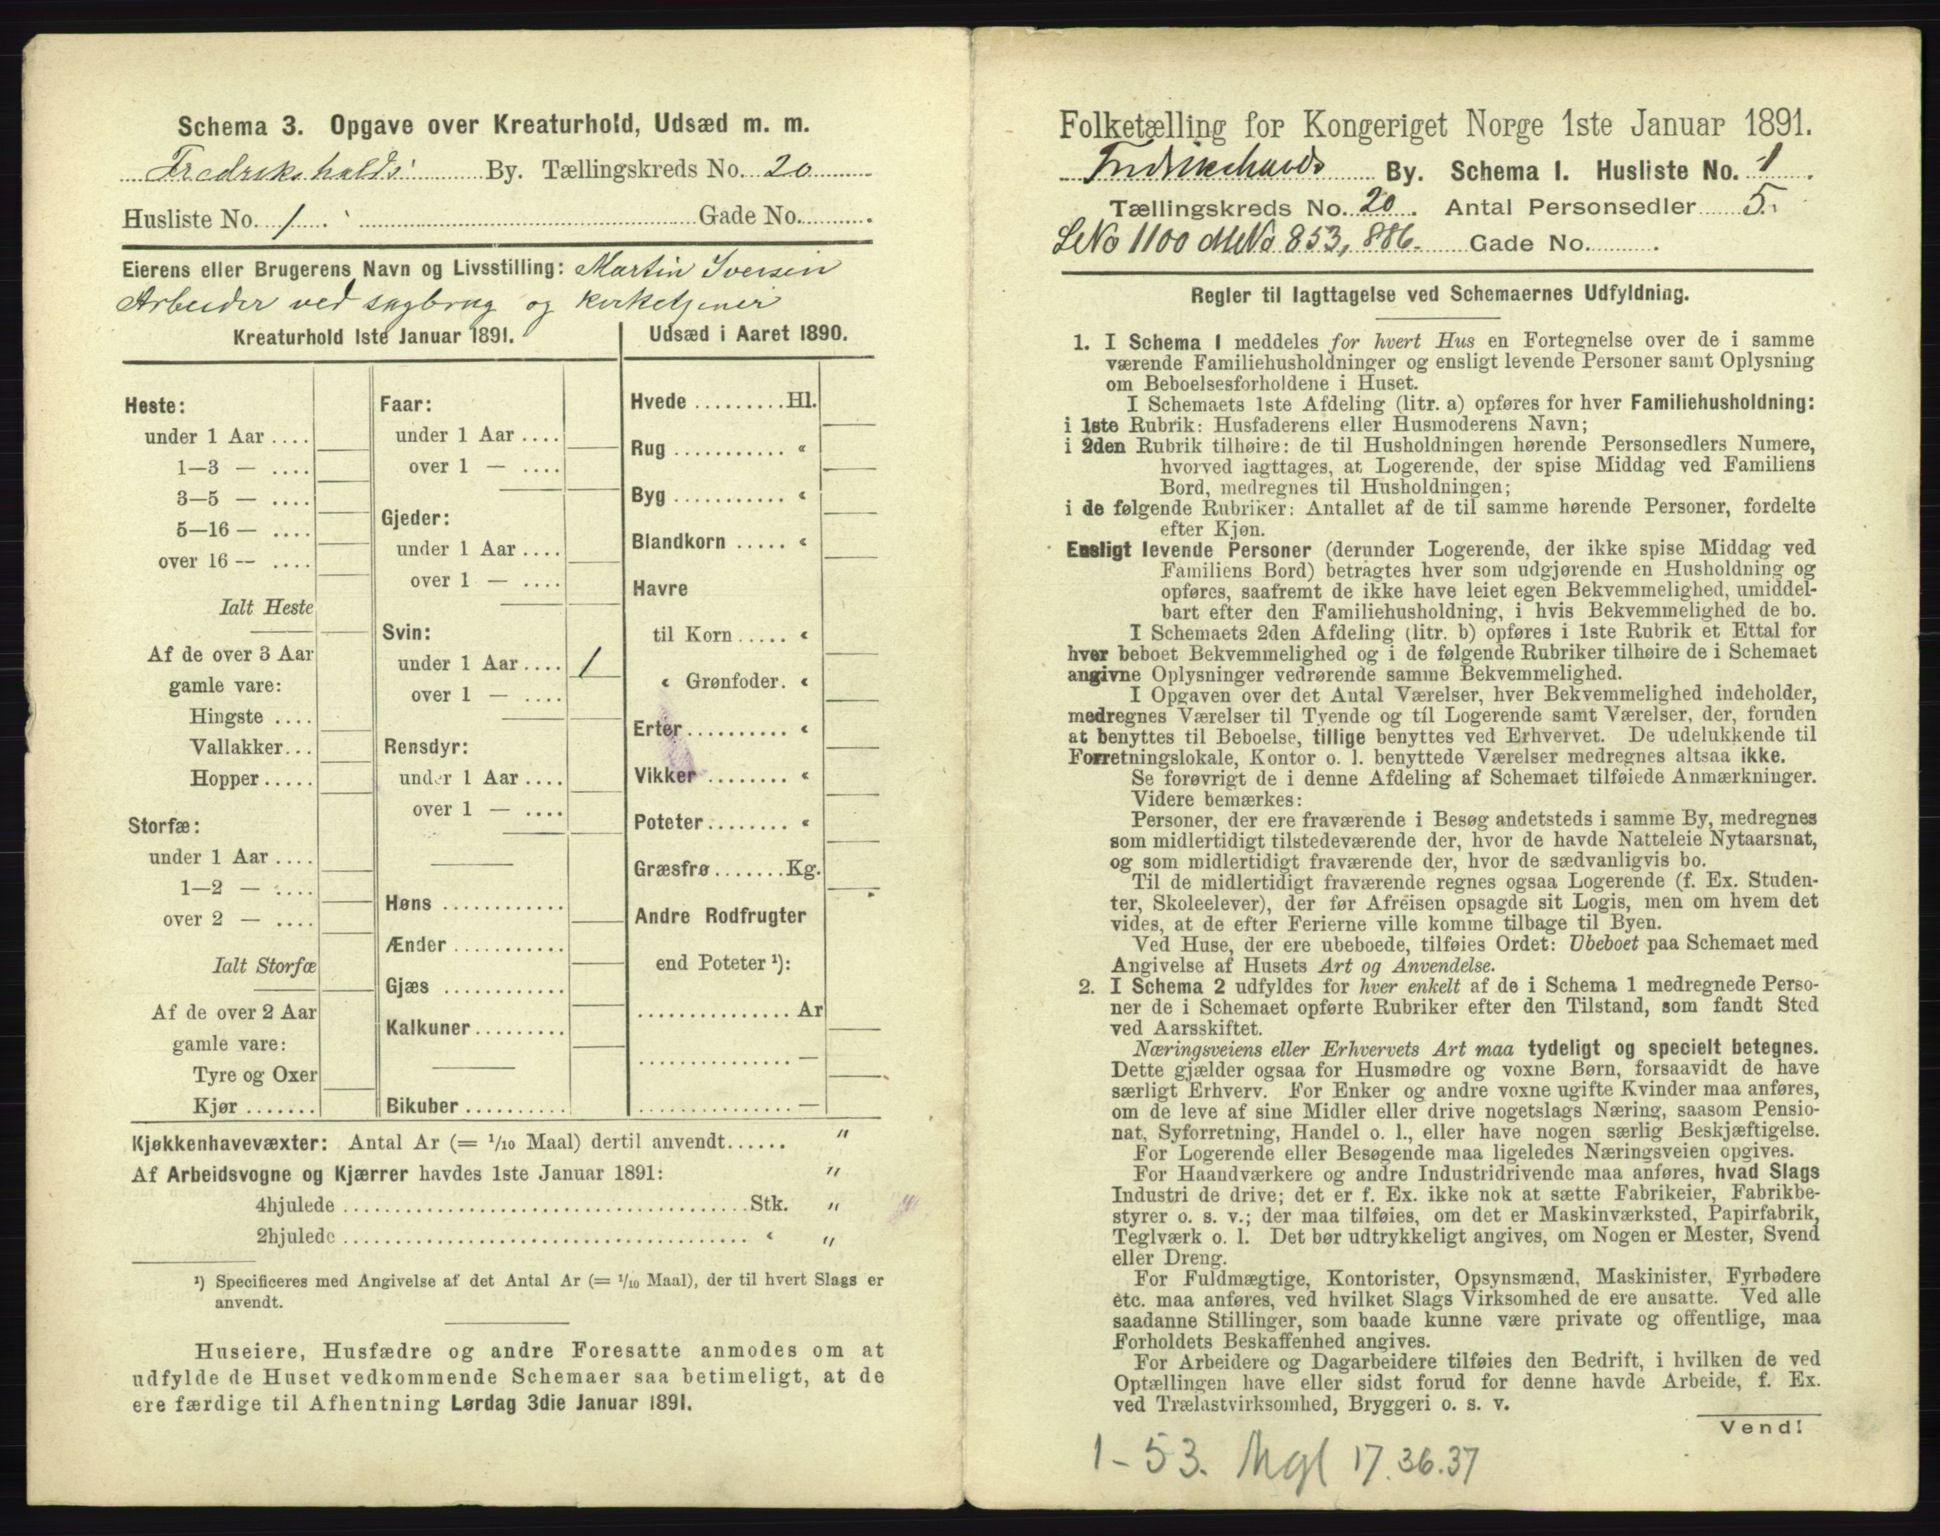 Schema 3. Opgave over Kreaturhold, Udsæd m. m.
Fredrikshalds By. Tællingskreds No. 20
Husliste No. 1. Gade No.
Eierens eller Brugerens Navn og Livsstilling: Martin Iversen
Arbeider ved sagbrug og kirketjener
Kreaturhold 1ste Januar 1891.
Heste:
under 1 Aar ....
1—3 — ....
3—5 — ....
5—16 — ....
over 16 — ....
Ialt Heste
Af de over 3 Aar
gamle vare:
Hingste ....
Vallakker...
Hopper.....
Storfæ:
under 1 Aar ....
1—2 — ....
over 2 — ....
Ialt Storfæ
Af de over 2 Aar
gamle vare:
Tyre og Oxer
Kjør .......
Faar:
under 1 Aar ....
over 1 — ....
Gjeder:
under 1 Aar ....
over 1 — ....
Svin:
under 1 Aar .... 1
over 1 — ....
Rensdyr:
under 1 Aar ....
over 1 — ....
Høns ............
Ænder ...........
Gjæs ............
Kalkuner.........
Bikuber ..........
Udsæd i Aaret 1890.
Hvede .........Hl.
Rug ........... «
Byg ........... «
Blandkorn ..... «
Havre
til Korn ..... «
« Grønfoder. «
Erter.......... «
Vikker ........ «
Poteter........ «
Græsfrø.......Kg.
Andre Rodfrugter
end Poteter ¹):
...............Ar
............... —
............... —
Kjøkkenhavevæxter: Antal Ar (= 1/10 Maal) dertil anvendt...... "
Af Arbeidsvogne og Kjærrer havdes 1ste Januar 1891: "
4hjulede ......................................Stk. "
2hjulede ...................................... « "
¹) Specificeres med Angivelse af det Antal Ar (= 1/10 Maal), der til hvert Slags er
anvendt.
Huseiere, Husfædre og andre Foresatte anmodes om at
udfylde de Huset vedkommende Schemaer saa betimeligt, at de
ere færdige til Afhentning Lørdag 3die Januar 1891.
Folketælling for Kongeriget Norge 1ste Januar 1891.
Fredrikshalds By. Schema I. Husliste No. 1
Tællingskreds No. 20. Antal Personsedler 5.
LNo 1100 MNo 853, 886. Gade No.
Regler til Iagttagelse ved Schemaernes Udfyldning.
1. I Schema I meddeles for hvert Hus en Fortegnelse over de i samme
værende Familiehusholdninger og ensligt levende Personer samt Oplysning
om Beboelsesforholdene i Huset.
I Schemaets 1ste Afdeling (litr. a) opføres for hver Familiehusholdning:
i 1ste Rubrik: Husfaderens eller Husmoderens Navn;
i 2den Rubrik tilhøire: de til Husholdningen hørende Personsedlers Numere,
hvorved iagttages, at Logerende, der spise Middag ved Familiens
Bord, medregnes til Husholdningen;
i de følgende Rubriker: Antallet af de til samme hørende Personer, fordelte
efter Kjøn.
Ensligt levende Personer (derunder Logerende, der ikke spise Middag ved
Familiens Bord) betragtes hver som udgjørende en Husholdning og
opføres, saafremt de ikke have leiet egen Bekvemmelighed, umiddel-
bart efter den Familiehusholdning, i hvis Bekvemmelighed de bo.
I Schemaets 2den Afdeling (litr. b) opføres i 1ste Rubrik et Ettal for
hver beboet Bekvemmelighed og i de følgende Rubriker tilhøire de i Schemaet
angivne Oplysninger vedrørende samme Bekvemmelighed.
I Opgaven over det Antal Værelser, hver Bekvemmelighed indeholder,
medregnes Værelser til Tyende og til Logerende samt Værelser, der, foruden
at benyttes til Beboelse, tillige benyttes ved Erhvervet. De udelukkende til
Forretningslokale, Kontor o. l. benyttede Værelser medregnes altsaa ikke.
Se forøvrigt de i denne Afdeling af Schemaet tilføiede Anmærkninger.
Videre bemærkes:
Personer, der ere fraværende i Besøg andetsteds i samme By, medregnes
som midlertidigt tilstedeværende der, hvor de havde Natteleie Nytaarsnat,
og som midlertidigt fraværende der, hvor de sædvanligvis bo.
Til de midlertidigt fraværende regnes ogsaa Logerende (f. Ex. Studen-
ter, Skoleelever), der før Afreisen opsagde sit Logis, men om hvem det
vides, at de efter Ferierne ville komme tilbage til Byen.
Ved Huse, der ere ubeboede, tilføies Ordet: Ubeboet paa Schemaet med
Angivelse af Husets Art og Anvendelse.
2. I Schema 2 udfyldes for hver enkelt af de i Schema 1 medregnede Perso-
ner de i Schemaet opførte Rubriker efter den Tilstand, som fandt Sted
ved Aarsskiftet.
Næringsveiens eller Erhvervets Art maa tydeligt og specielt betegnes.
Dette gjælder ogsaa for Husmødre og voxne Børn, forsaavidt de have
særligt Erhverv. For Enker og andre voxne ugifte Kvinder maa anføres,
om de leve af sine Midler eller drive nogetslags Næring, saasom Pensio-
nat, Syforretning, Handel o. l., eller have nogen særlig Beskjæftigelse.
For Logerende eller Besøgende maa ligeledes Næringsveien opgives.
For Haandværkere og andre Industridrivende maa anføres, hvad Slags
Industri de drive; det er f. Ex. ikke nok at sætte Fabrikeier, Fabrikbe-
styrer o. s. v.; der maa tilføies, om det er Maskinværksted, Papirfabrik,
Teglværk o. l. Det bør udtrykkeligt angives, om Nogen er Mester, Svend
eller Dreng.
For Fuldmægtige, Kontorister, Opsynsmænd, Maskinister, Fyrbødere
etc. maa anføres, ved hvilket Slags Virksomhed de ere ansatte. Ved alle
saadanne Stillinger, som baade kunne være private og offentlige, maa
Forholdets Beskaffenhed angives.
For Arbeidere og Dagarbeidere tilføies den Bedrift, i hvilken de ved
Optællingen have eller sidst forud for denne havde Arbeide, f. Ex.
ved Trælastvirksomhed, Bryggeri o. s. v.
Vend!
1-53. Mgl 17.36.37